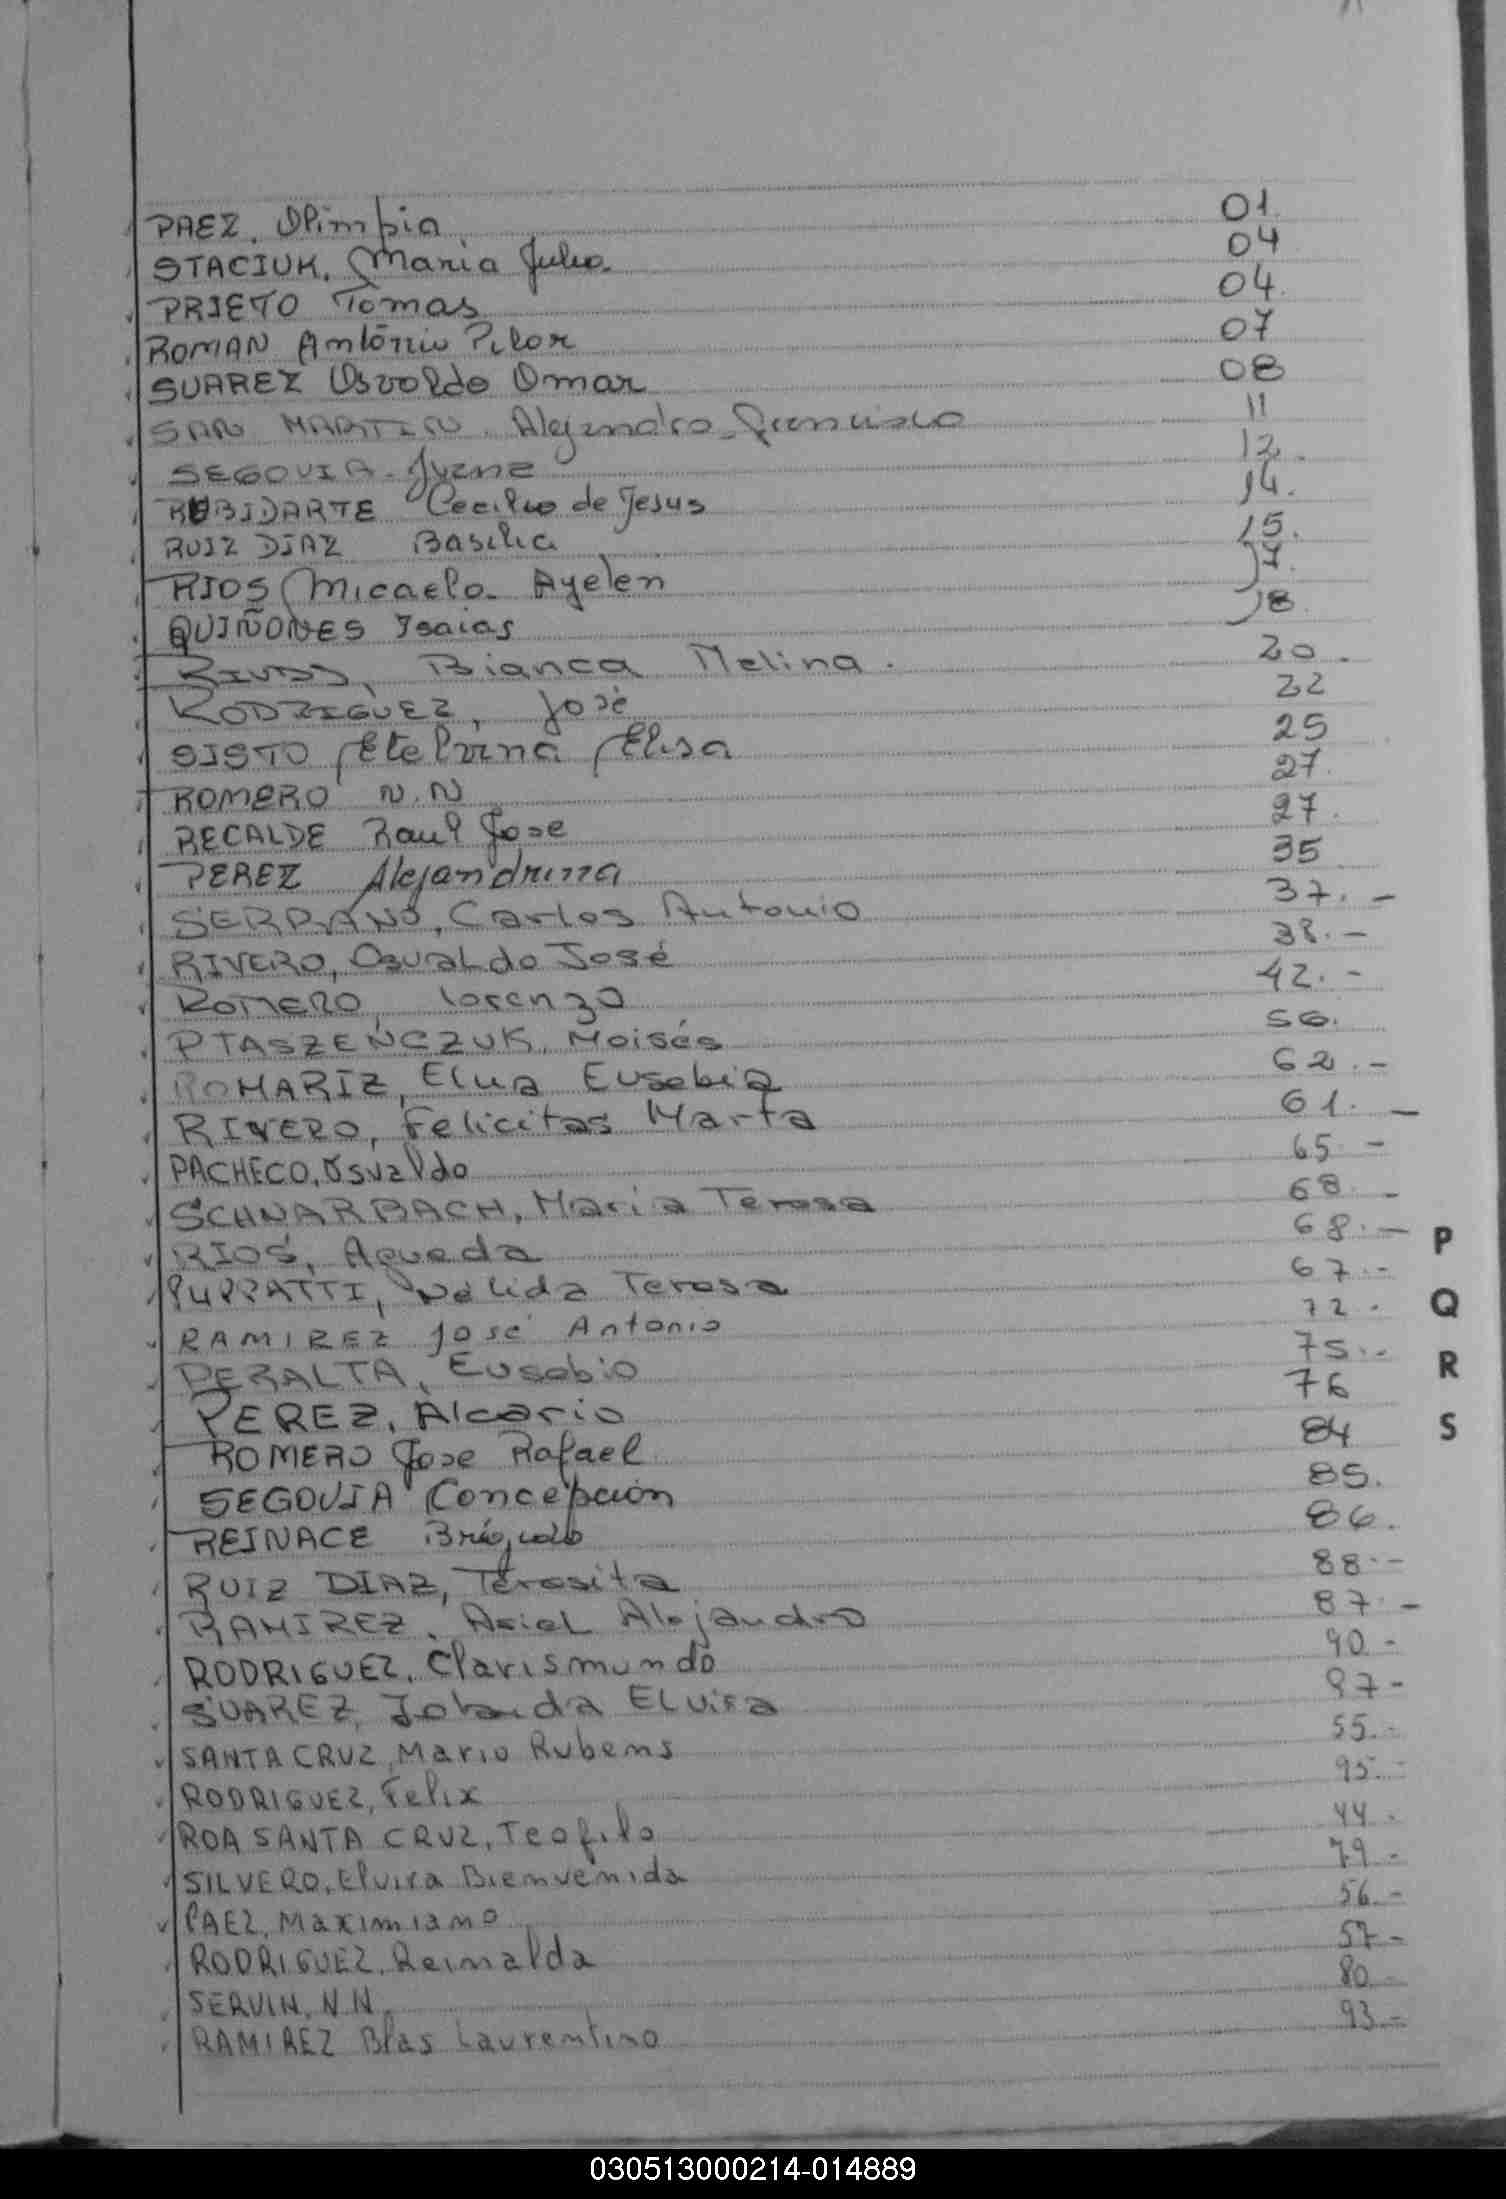 PAEZ, Olimpia 01
STACIUK, Maria Julia 04
PRIETO Tomas 04.
ROMAN António Pilar 07
SUAREZ Osvaldo Omar 08
SAN MARTIN. Alejandro Francisco 11
SEGOVIA - 12.
RUBIDARTE Cecilio de Jesus 14.
RUIZ DIAZ Basilia 15.
RIOS Micaela Ayelen 17.
QUIÑONES Isaias 18
Bianca Melina. 20.
RODRIGUEZ, José 22
SISTO Etelvina Elisa 25
ROMERO N.N 27.
RECALDE Raul Jose 27.
PEREZ Alejandrina 35
SERRANO, Carlos Antonio 37.-
RIVERO, Osvaldo José 38.-
ROMERO, Lorenzo 42.-
PTASZENCZUK, Moisés 56.
ROMARIZ, Elua Eusebia 62.-
RIVERO, Felicitas Marta 61.-
PACHECO, Osvaldo 65-
SCHNARBACH, Maria Teresa 68-
RIOS, Agueda 68.-
PUPPATTI, Nélida Teresa 67.-
RAMIREZ José Antonio 72.
PERALTA, Eusebio 75..
PEREZ, Alcario 76
ROMERO Jose Rafael 84
SEGOVIA Concepción 85.
REINACE 86.
RUIZ DIAZ, Teresita 88.-
RAMIREZ, Asiel Alejandro 87.-
RODRIGUEZ, Clarismundo 90-
SUAREZ, Jolanda Elvira 97-
SANTA CRUZ, Mario Rubens 55.-
RODRIGUEZ, Felix 95.-
ROA SANTA CRUZ, Teofilo 44-
SILVERO, Elvira Bienvenida 79-
PAEZ, Maximiano 56-
RODRIGUEZ, Reinalda 57-
SERVIN, N.N. 80-
RAMIREZ Blas Laurentino 93-
P
Q
R
S
030513000214-014889